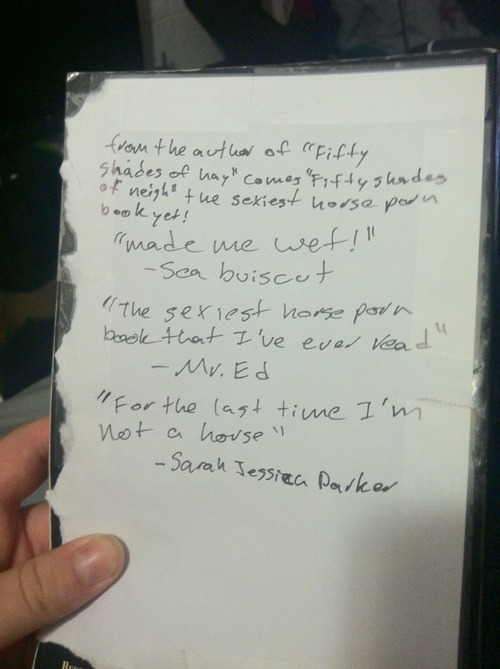 from the author of "Fifty
shades of hay" comes "Fifty shades
of neigh" the sexiest horse porn
book yet!
"made me wet!"
-Sea buiscut
"The sexiest horse porn
book that I've ever read"
- Mr. Ed
"For the last time I'm
not a horse"
-Sarah Jessica Parker